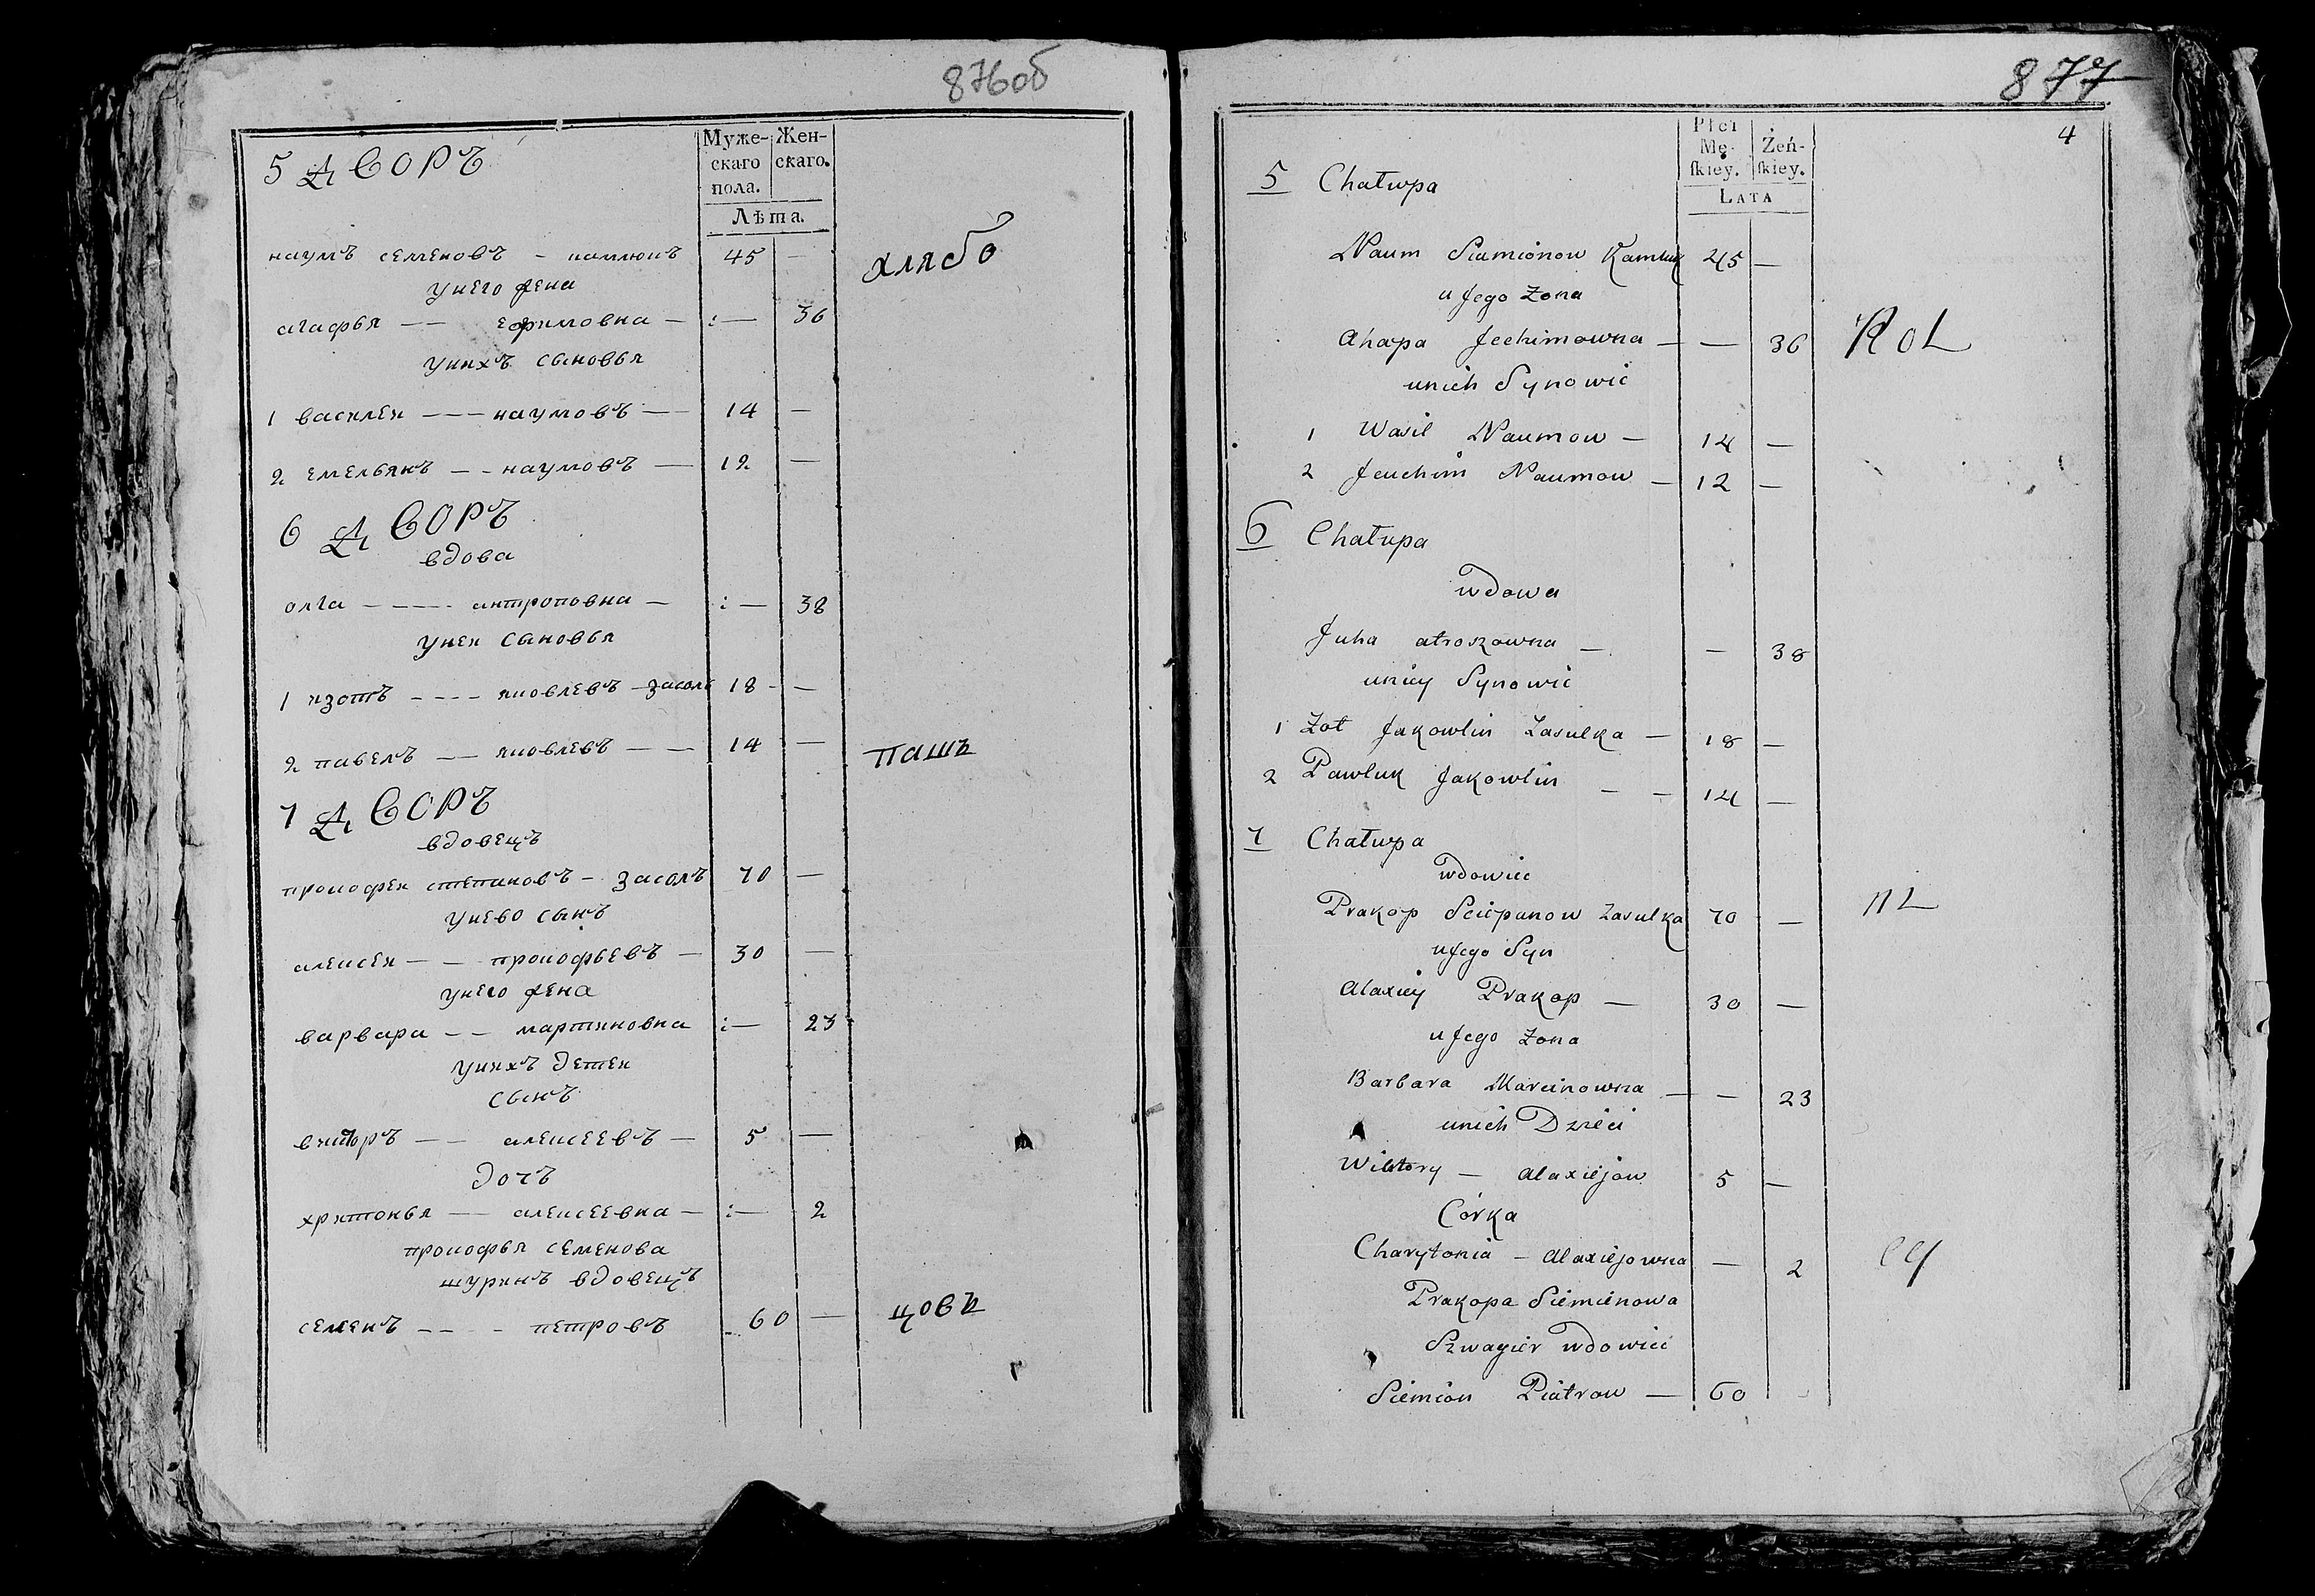 876об
5 ДВОРЪ
Муже-
скаго
пола.
Жен-
скаго.
Лѣта.
наумъ семеновъ - камлюкъ 45 —
унего жена
агафья —— ефимовна — :— 36
унихъ сыновья
1 василеи ——— наумовъ —— 14 —
2 емельянъ —— наумовъ — 12 —
хлябо
6 ДВОРЪ
вдова
олга ———— антроповна — :— 38
унеи сыновья
1 изотъ ———— яковлевъ — засолк 18 - —
2 павелъ —— яковлевъ —— 14 —
пашъ
7 ДВОРЪ
вдовецъ
прокофеи степановъ — засолъ 70 —
унево сынъ
алексеи —— прокофьевъ — 30 —
унего жена
варвара —— мартиновна :— 23
унихъ детеи
сынъ
викторъ —— алексеевъ — 5 —
дочъ
хритонья —— алексеевна — :— 2
прокофья семенова
шуринъ вдовецъ
семенъ ——— петровъ 60 —
цовъ
877
4
Płci
Mę-
ſkiey.
Żeń-
ſkiey.
LATA
5 Chałupa
Naum Siamionow Kamluk 45 —
u Jego Zona
Ahapa Jechimowna — — 36
unich Synowie
1 Wasil Naumow — 14 —
2 Jeuchim Naumow — 12 —
Rol
6 Chałupa
wdowa
Juha atroszowna — — 38
uniey Synowie
1 Zot Jakowlin Zasulka — 18 —
2 Pawluk Jakowlin — — 14 —
7 Chałupa
wdowiec
Prakop Sciepanow Zasulka 70 —
uJego Syn
Alaxiey Prakop — 30 —
u Jego Zona
Barbara Marcinowna — — 23
unich Dzieci
Wiktory — Alaxiejow 5 —
Córka
Charytonia — Alaxiejowna — 2
Prakopa Siemienowa
Szwagier wdowiec
Siemion Piatrow — 60